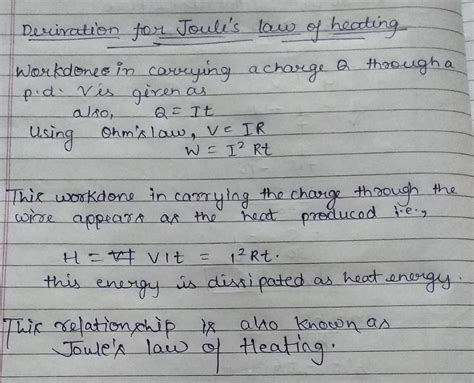 Derivation for Joule's law of heating
Workdone in carrying a charge Q through a
p.d. V is given as
also, Q = It
Using Ohm's law, V = IR
W = I² Rt
This workdone in carrying the charge through the
wire appears as the heat produced i.e.,
H = VIt = I²Rt.
this energy is dissipated as heat energy.
This relationship is also known as
Joule's law of Heating.